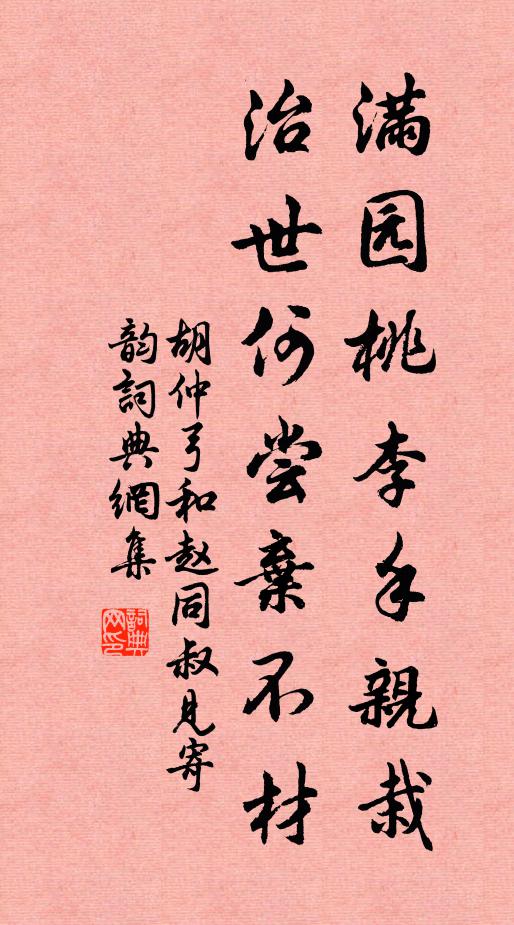 满园桃李手親栽
治世何尝棄不材
胡仲弓和赵同叔見寄
韵詞典網集
詞典网印